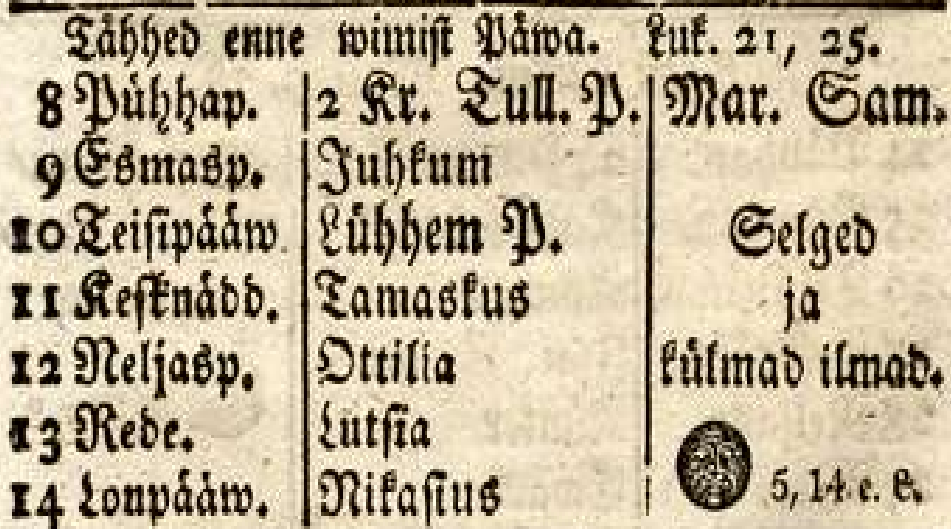 Tähhed enne wimist Päwa. Luk. 21, 25.
8 Pühhap. 2 Kr. Tull. P. Mar. Sam.
9 Esmasp. Juhkum
10 Teisipääw Lühhem P. Selged
11 Kesknädd. Tamaskus ja
12 Neljasp. Ottilia külmad ilmad.
13 Rede. Lutsia
14 Lonpääw. Nikasius 5, 14 e. E.